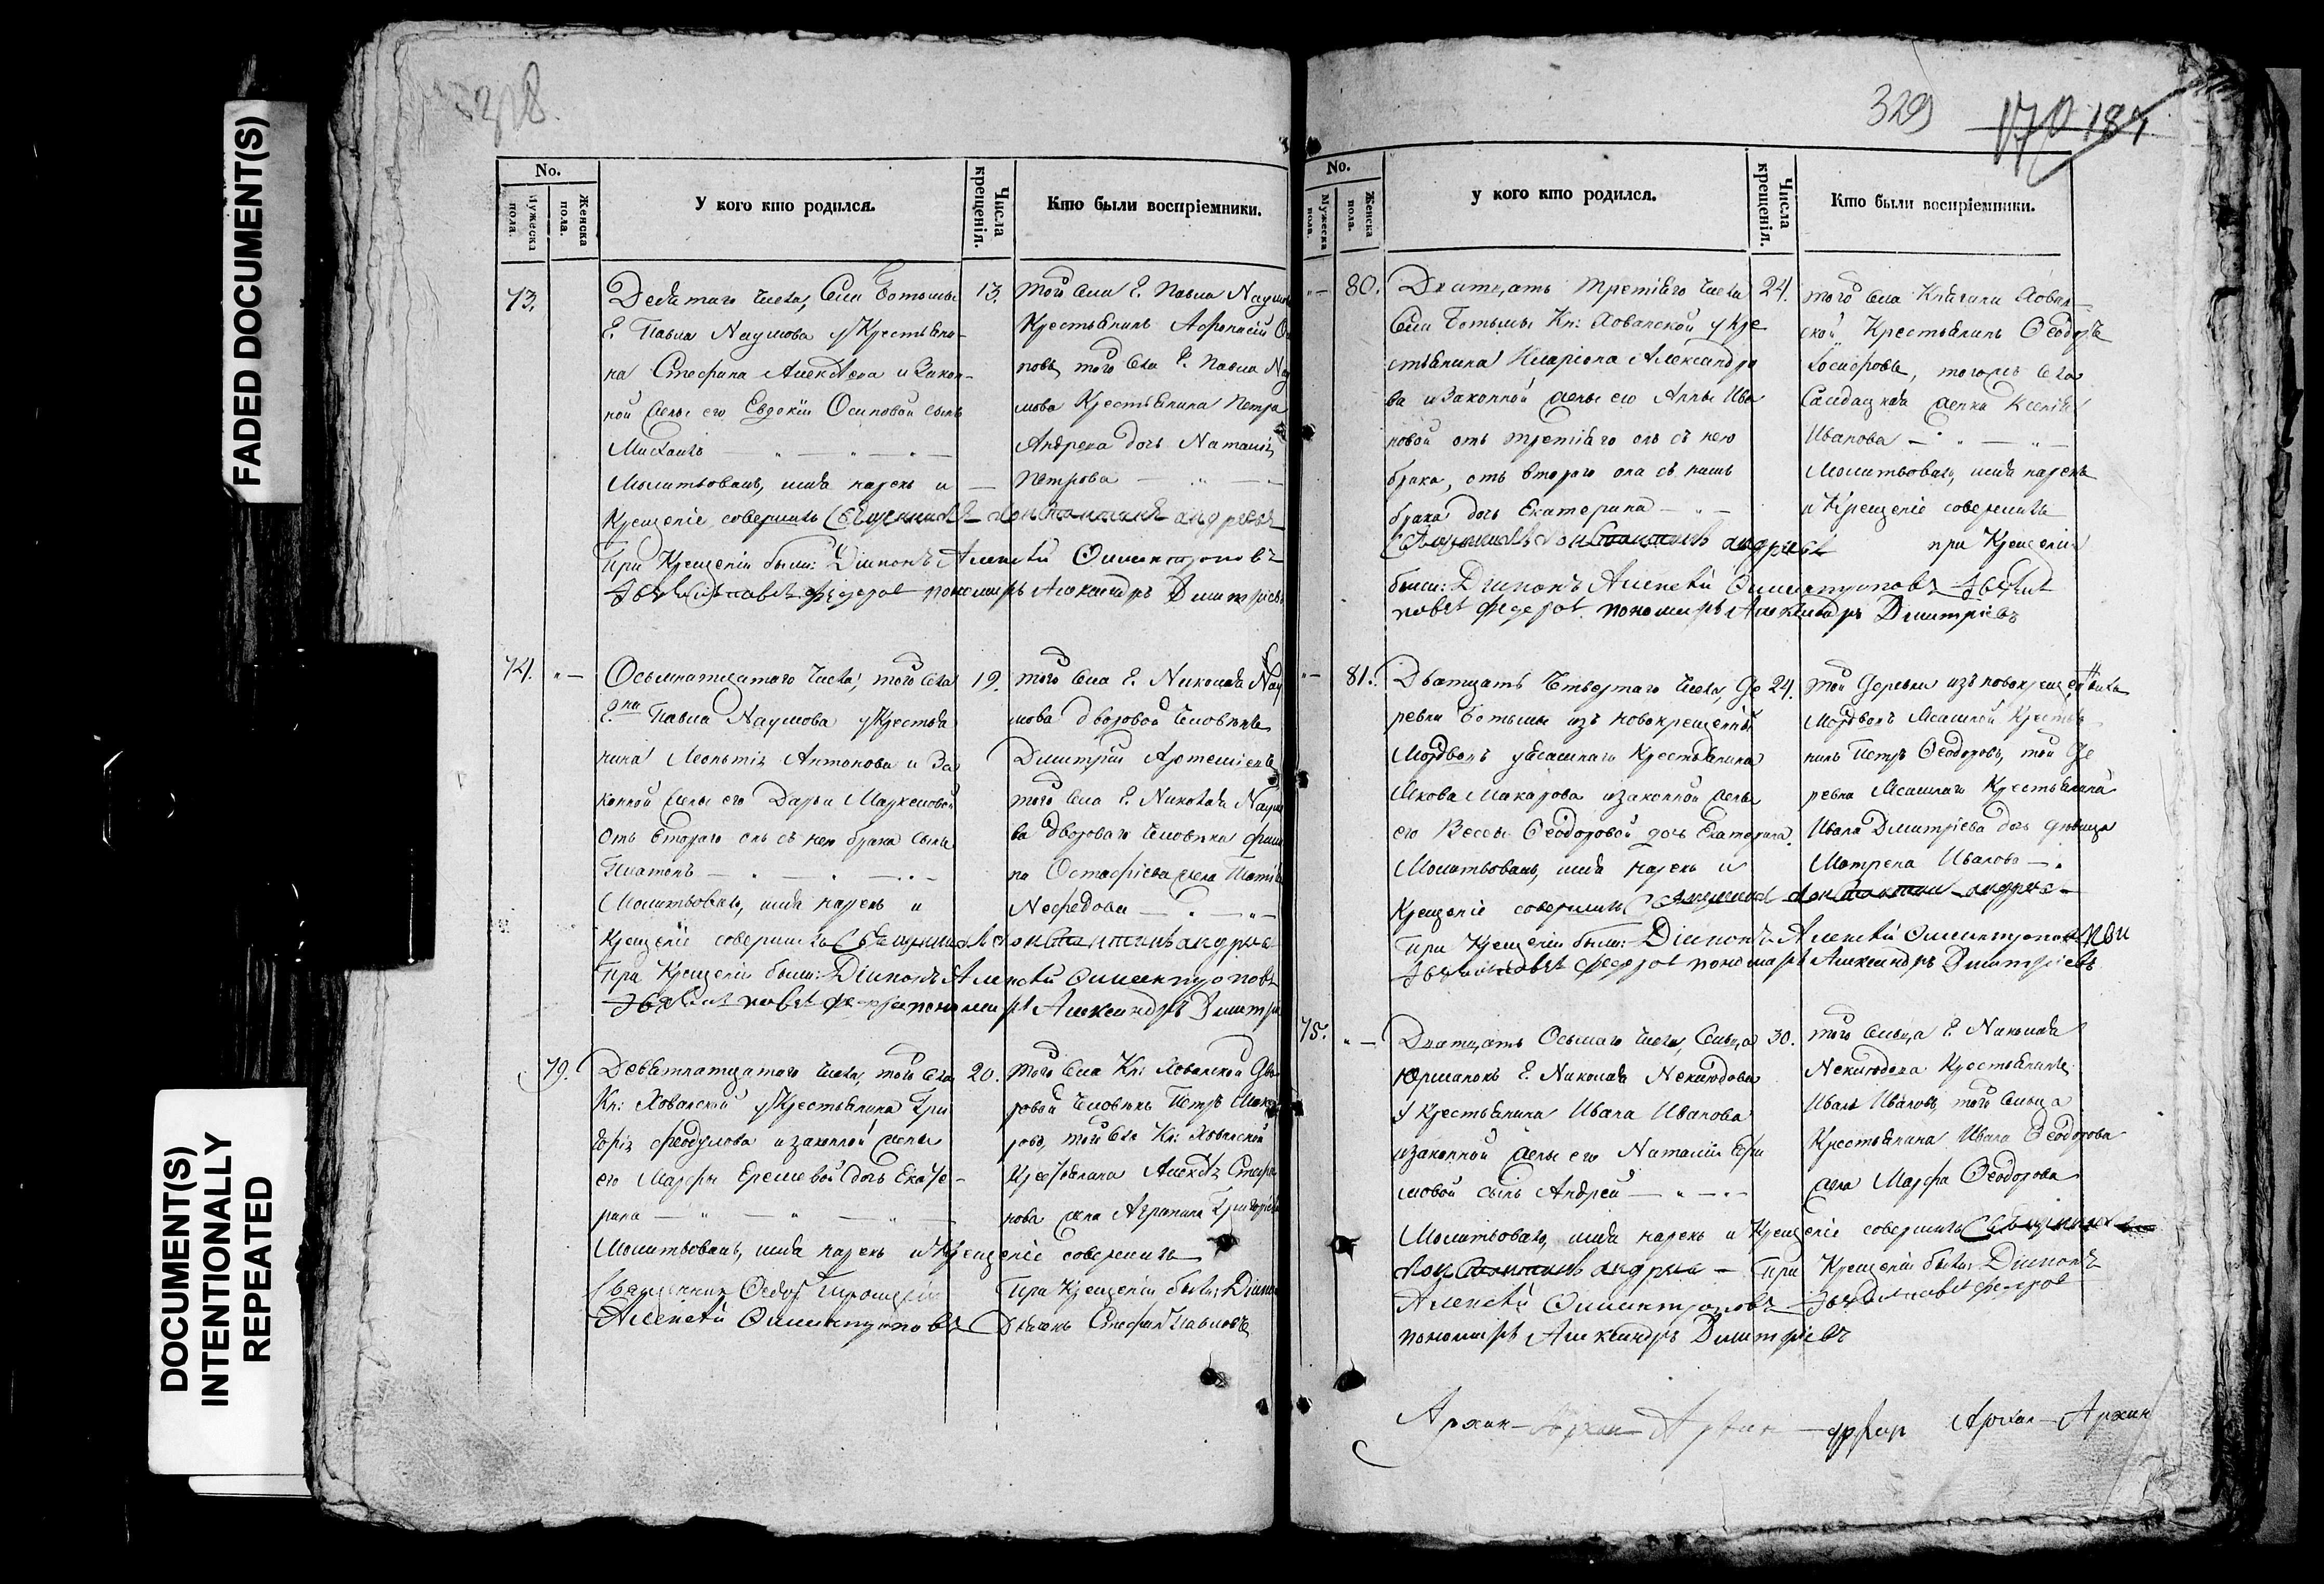 FADED DOCUMENT(S)
DOCUMENT(S)
INTENTIONALLY
REPEATED
328.
No.
Мужеска пола.
Женска пола.
У кого кто родился.
Числа крещенія.
Кто были воспріемники.
73.
Десятаго числа, села Ботьмы
Г. Павла Наумова у крестьяни-
на Стефана Алексѣева и закон-
ной жены его Евдокіи Осиповой сынъ
Михаилъ
Молитвовалъ, имя нарекъ и
Крещеніе совершилъ Священникъ Константинъ Андреевъ
При Крещеніи были: Діаконъ Алексѣй
Федоровъ пономарь Александръ Димитріевъ
13.
того села Г. Павла Наумо
Крестьянинъ Афанасій
повъ, того села Г. Павла Нау
мова Крестьянина Петра
Андреева дочь Наталія
Петрова
74.
Осьмнатцатаго числа, того села
Г-на Павла Наумова у крестья
нина Леонтія Антонова и за
конной жены его Дарьи Маркеловой
отъ втораго онъ съ нею брака сынъ
Платонъ
Молитвовалъ, имя нарекъ и
Крещеніе совершилъ Священникъ Константинъ Андреевъ
При Крещеніи были: Діаконъ Алексѣй
пономарь Александръ Димитрі
19.
того села Г. Николая Нау
мова дворовой человѣкъ
Димитрій Артемьевъ
того села Г. Николая Наумо
ва двороваго человѣка Фили
па Остафіева жена
Нефедова
79.
Девятнатцатаго числа, того села
Кн: Хованской у крестьянина Гри
горія Феодулова и законной жены
его Марфы Еремевой дочь Екате-
рина
Молитвовалъ, имя нарекъ и Крещеніе совершилъ
Священникъ Ѳедоръ
При Крещеніи были: Діаконъ
Алексѣй
Дьячекъ Стефанъ Павловъ
20.
того села Кн: Хованской дво
ровой человѣкъ Петръ Мака
ровъ, того села Кн: Хованской
Крестьянина Алексѣя Степа
нова жена Агрипина Григорьева
329
170 184
No.
Мужеска пола.
Женска пола.
у кого кто родился.
Числа крещенія.
Кто были воспріемники.
80.
Дватцать третьяго числа
села Ботьмы Кн: Хованской у кре
стьянина Иларіона Александро
ва и законной жены его Анны Ива
новой отъ третіяго онъ съ нею
брака, отъ втораго она съ нимъ
брака дочь Екатерина
Священникъ Константинъ Андреевъ
были: Діаконъ Алексѣй
Федоровъ пономарь Александръ Димитріевъ
24.
того села Княгини Хован-
ской Крестьянинъ Ѳеодоръ
Іосифовъ, того же села
Солдацкая жонка Ксенія
Иванова
Молитвовалъ, имя нарекъ
и Крещеніе совершилъ
при Крещеніи
81.
Дватцать четвертаго числа, де
ревни Ботьмы изъ новокрещеныхъ
Мордвовъ у ясашнаго крестьянина
Якова Макарова и законной жены
его Вессы Ѳеодоровой дочь Екатерина.
Молитвовалъ, имя нарекъ и
Крещеніе совершилъ Священникъ Константинъ Андреевъ
При Крещеніи были: Діаконъ Алексѣй
Федоровъ пономарь Александръ Димитріевъ
24.
той деревни изъ новокрещеныхъ
Мордвовъ ясашной крестья
нинъ Петръ Ѳеодоровъ, той де
ревни ясашнаго крестьянина
Ивана Димитріева дочь дѣвица
Матрена Иванова
75.
Дватцать осьмаго числа, сельца
Юрманокъ Г. Николая Неклюдова
у крестьянина Ивана Иванова
и законной жены его Наталіи Ефи
мовой сынъ Андрей
Молитвовалъ, имя нарекъ и Крещеніе совершилъ Священникъ
Константинъ Андреевъ При Крещеніи были: Діаконъ
Алексѣй
Федоровъ
пономарь Александръ Димитріевъ
30.
того сельца Г. Николая
Неклюдова Крестьянинъ
Иванъ Ивановъ, того сельца
Крестьянина Ивана Ѳеодорова
жена Марфа Ѳеодорова